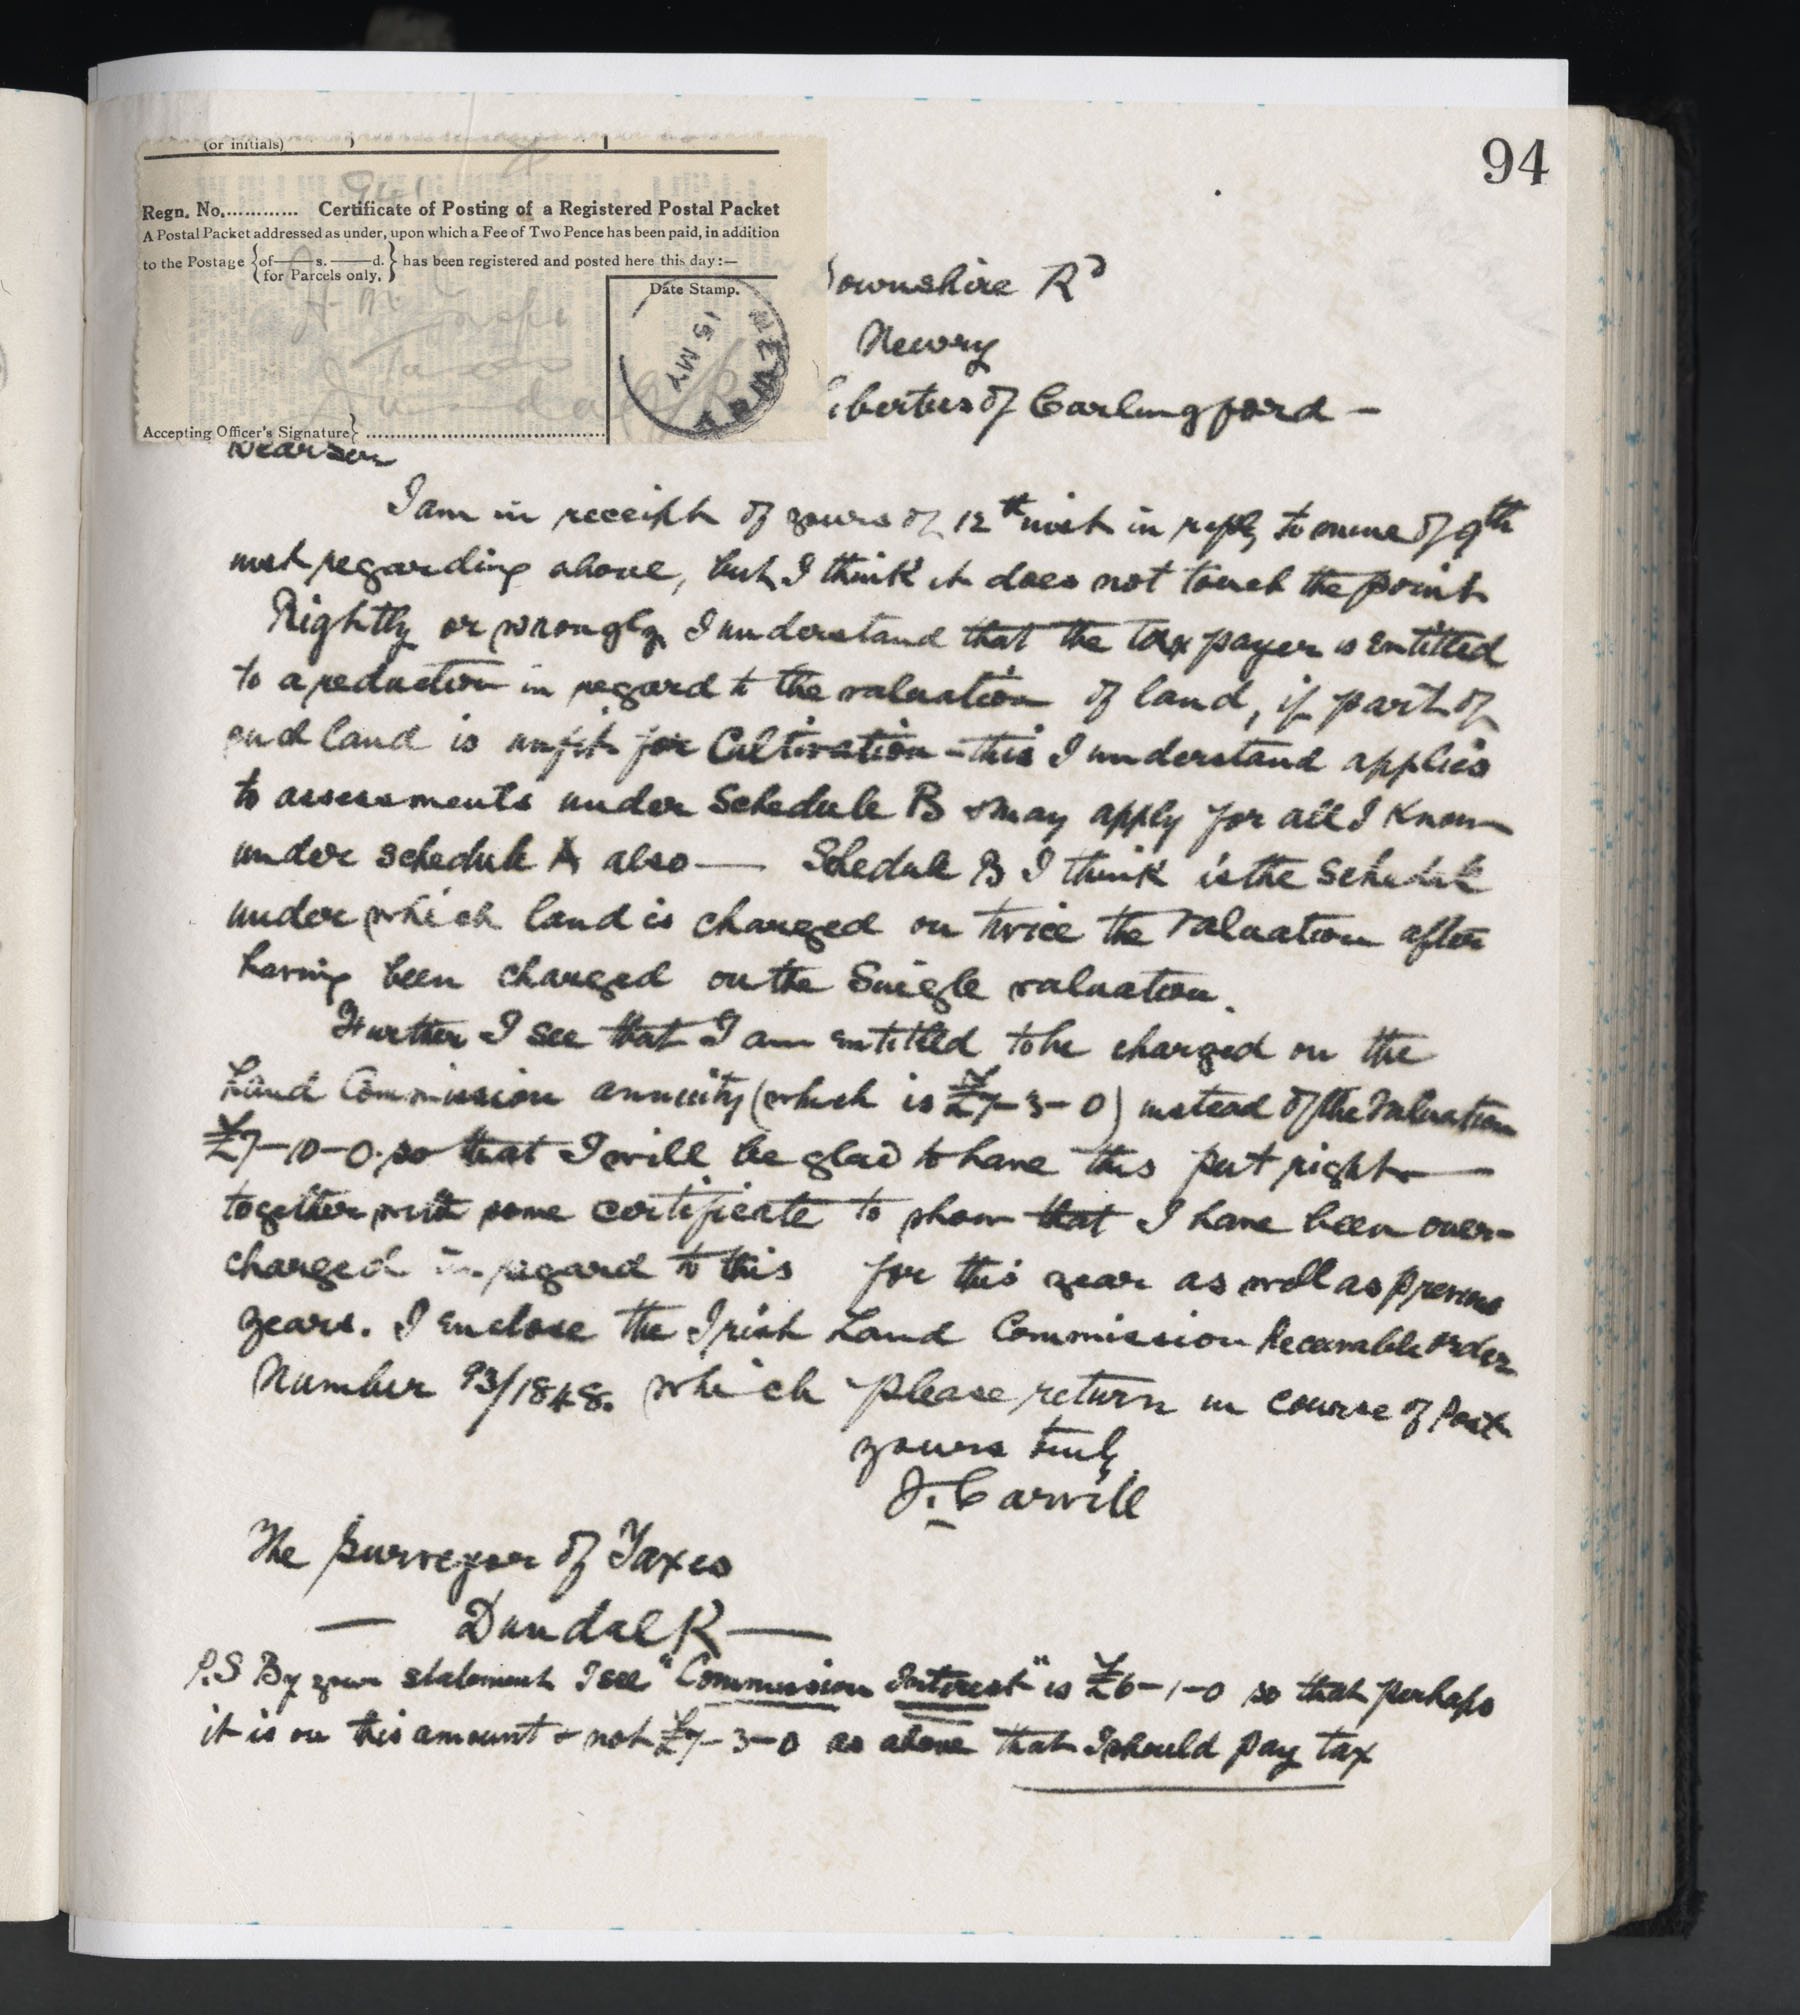 94
(or initials)
Regn. No............. Certificate of Posting of a Registered Postal Packet
A Postal Packet addressed as under, upon which a Fee of Two Pence has been paid, in addition
to the Postage {of——s.——d. for Parcels only.} has been registered and posted here this day:—
Date Stamp.
NEWRY
15 MY
Dundalk
Accepting Officer's Signature} ..........................................
ownshire Rd
Newry
iberties of Carlingford —
Dear Sir
I am in receipt of yours of 12th inst in reply to mine of 9th
inst regarding above, but I think it does not touch the point
Rightly or wrongly I understand that the tax payer is entitled
to a reduction in regard to the valuation of land, if part of
such land is unfit for Cultivation – this I understand applies
to assessments under Schedule B & may apply for all I know
under schedule A also — Schedule B I think is the Schedule
under which land is charged on twice the valuation after
having been charged on the Single valuation.
Further I see that I am entitled to be charged on the
Land Commission annuity (which is £7–3–0) instead of the Valuation
£7–10–0. so that I will be glad to have this put right —
together with some certificate to show that I have been over-
charged in regard to this for this year as well as previous
years. I enclose the Irish Land Commission Receivable order
Number 93/1848. which please return in course of Post
yours truly
J. Carvill
The Surveyor of Taxes
— Dundalk —
P.S By your statement I see "Commission Interest" is £6–1–0 so that perhaps
it is on this amount & not £7–3–0 as above that I should pay tax